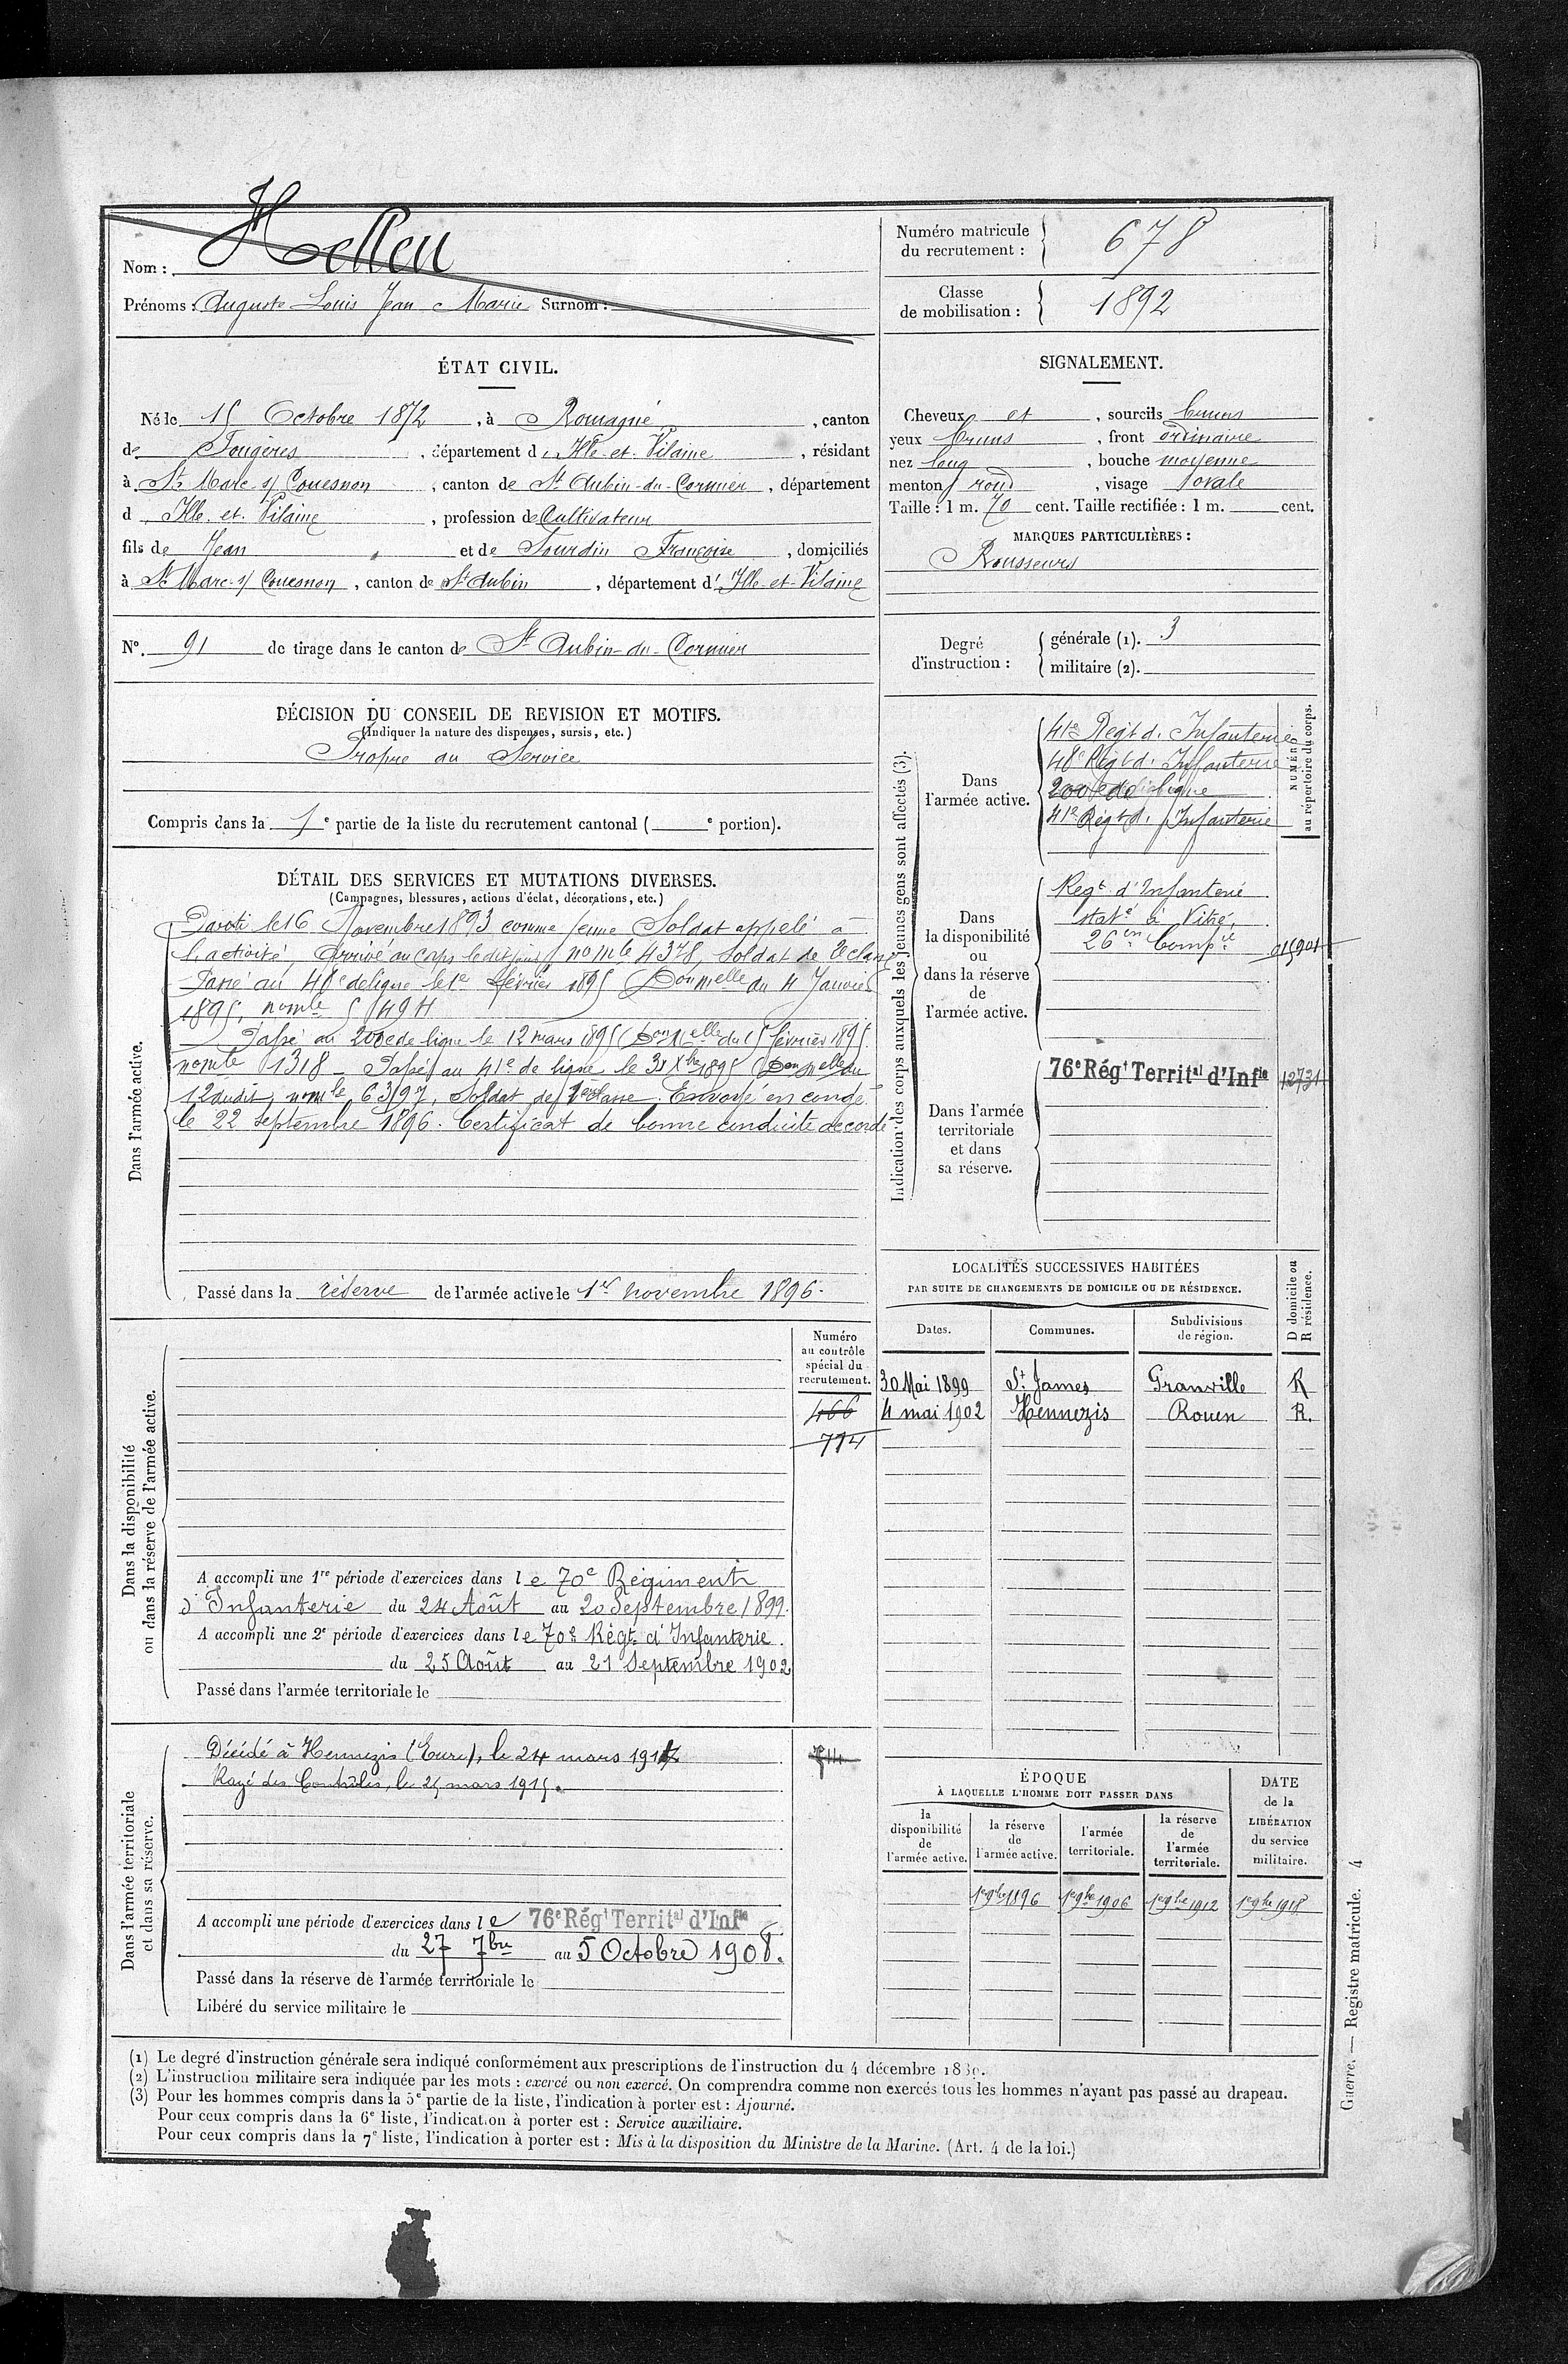 Nom : Helleu
Prénoms : Auguste Louis Jean Marie Surnom :
Numéro matricule du recrutement : 678
Classe de mobilisation : 1892
ÉTAT CIVIL.
Né le 15 Octobre 1872, à Romagné, canton
de Fougères, département d'Ille-et-Vilaine, résidant
à St Marc s/ Couesnon, canton de St Aubin-du-Cormier, département
d Ille-et-Vilaine, profession de Cultivateur
fils de Jean et de Tourdin Françoise, domiciliés
à St Marc s/ Couesnon, canton de St Aubin, département d'Ille-et-Vilaine
No. 91 de tirage dans le canton de St Aubin-du-Cormier
SIGNALEMENT.
Cheveux et, sourcils bruns
yeux bruns, front ordinaire
nez long, bouche moyenne
menton rond, visage ovale
Taille : 1 m. 70 cent. Taille rectifiée : 1 m. cent.
MARQUES PARTICULIÈRES :
Rousseurs
Degré d'instruction : générale (1). 3
militaire (2).
DÉCISION DU CONSEIL DE REVISION ET MOTIFS.
(Indiquer la nature des dispenses, sursis, etc.)
Propre au Service
Compris dans la 1e partie de la liste du recrutement cantonal ( e portion).
DÉTAIL DES SERVICES ET MUTATIONS DIVERSES.
(Campagnes, blessures, actions d'éclat, décorations, etc.)
Dans l'armée active.
Parti le 16 Novembre 1893 comme jeune Soldat appelé à
l'activité, Arrivé au corps ledit jour, no mle 4378, Soldat de 2e classe
Passé au 48e de ligne le 1er février 1895 (Don melle du 4 Janvier
1895, no mle 5494
Passé au 200e de ligne le 12 mars 1895 (Don melle du 15 février 1895.
no mle 1318 - Passé au 41e de ligne le 31 Xbre 1895 (Don melle du
12 dudit, no mle 6397, Soldat de 1ère classe. Envoyé en congé
le 22 Septembre 1896. Certificat de bonne conduite accordé
Passé dans la réserve de l'armée active le 1er novembre 1896.
Indication des corps auxquels les jeunes gens sont affectés (3).
NUMÉRO au répertoire du corps.
Dans l'armée active.
41e Régt d'Infanterie
48e Régt d'Infanterie
200e de ligne
41e Régt d'Infanterie
Dans la disponibilité ou dans la réserve de l'armée active.
Regt d'Infanterie
stat é à Vitré,
26en Compie
015901
Dans l'armée territoriale et dans sa réserve.
76e Régt Territal d'Infie 12731
LOCALITÉS SUCCESSIVES HABITÉES
PAR SUITE DE CHANGEMENTS DE DOMICILE OU DE RÉSIDENCE.
D domicile ou R résidence.
Dates. Communes. Subdivisions de région.
30 Mai 1899 St James Granville R
4 mai 1902 Hennezis Rouen R.
Dans la disponibilité ou dans la réserve de l'armée active.
Numéro au contrôle spécial du recrutement.
466
774
A accompli une 1re période d'exercices dans le 70e Régiment
d'Infanterie du 24 Août au 20 Septembre 1899.
A accompli une 2e période d'exercices dans le 70e Régt d'Infanterie.
du 25 Août au 21 Septembre 1902
Passé dans l'armée territoriale le
Dans l'armée territoriale et dans sa réserve.
Décédé à Hennezis (Eure), le 24 mars
Rayé des Contrôles, le 25 mars 1915.
A accompli une période d'exercices dans le 76e Régt Territal d'Infie
du 27 7bre au 5 Octobre 1908.
Passé dans la réserve de l'armée territoriale le
Libéré du service militaire le
ÉPOQUE
À LAQUELLE L'HOMME DOIT PASSER DANS
la disponibilité de l'armée active.
la réserve de l'armée active.
l'armée territoriale.
la réserve de l'armée territoriale.
DATE de la LIBÉRATION du service militaire.
1er 9bre 1896 1er 9bre 1906 1er 9bre 1912 1er 9bre 1918
(1) Le degré d'instruction générale sera indiqué conformément aux prescriptions de l'instruction du 4 décembre
(2) L'instruction militaire sera indiquée par les mots : exercé ou non exercé. On comprendra comme non exercés tous les hommes n'ayant pas passé au drapeau.
(3) Pour les hommes compris dans la 5e partie de la liste, l'indication à porter est : Ajourné.
Pour ceux compris dans la 6e liste, l'indication à porter est : Service auxiliaire.
Pour ceux compris dans la 7e liste, l'indication à porter est : Mis à la disposition du Ministre de la Marine. (Art. 4 de la loi.)
Guerre. — Registre matricule. 4